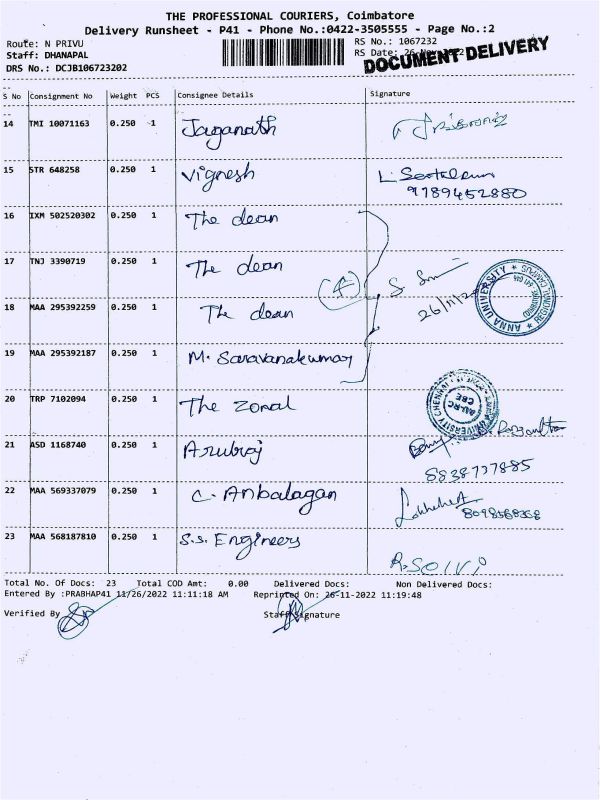 THE PROFESSIONAL COURIERS, Coimbatore
Delivery Runsheet - P41 - Phone No.:0422-3505555 - Page No.:2
Route: N PRIVU
RS No.: 1067232
Staff: DHANAPAL
RS Date: 26-Nov-2022
DOCUMENT DELIVERY
DRS No.: DCJB106723202
S No Consignment No Weight PCS Consignee Details Signature
14 TMI 10071163 0.250 1 Jaganath
15 STR 648258 0.250 1 Vignesh L
9789452880
16 IXM 502520302 0.250 1 The dean
17 TNJ 3390719 0.250 1 The dean
(4) S. 26/11/2
ANNA UNIVERSITY * REGIONAL CAMPUS
18 MAA 295392259 0.250 1 The dean
19 MAA 295392187 0.250 1 M. Saravanakumar
20 TRP 7102094 0.250 1 The zonal
AU-RC
CBE
21 ASD 1168740 0.250 1 Arubraj
8838737885
22 MAA 569337079 0.250 1 C. Anbalagan
23 MAA 568187810 0.250 1 S.S. Engineers
R. SOIVI
Total No. Of Docs: 23 Total COD Amt: 0.00 Delivered Docs: Non Delivered Docs:
Entered By :PRABHAP41 11/26/2022 11:11:18 AM Reprinted On: 26-11-2022 11:19:48
Verified By Staff Signature